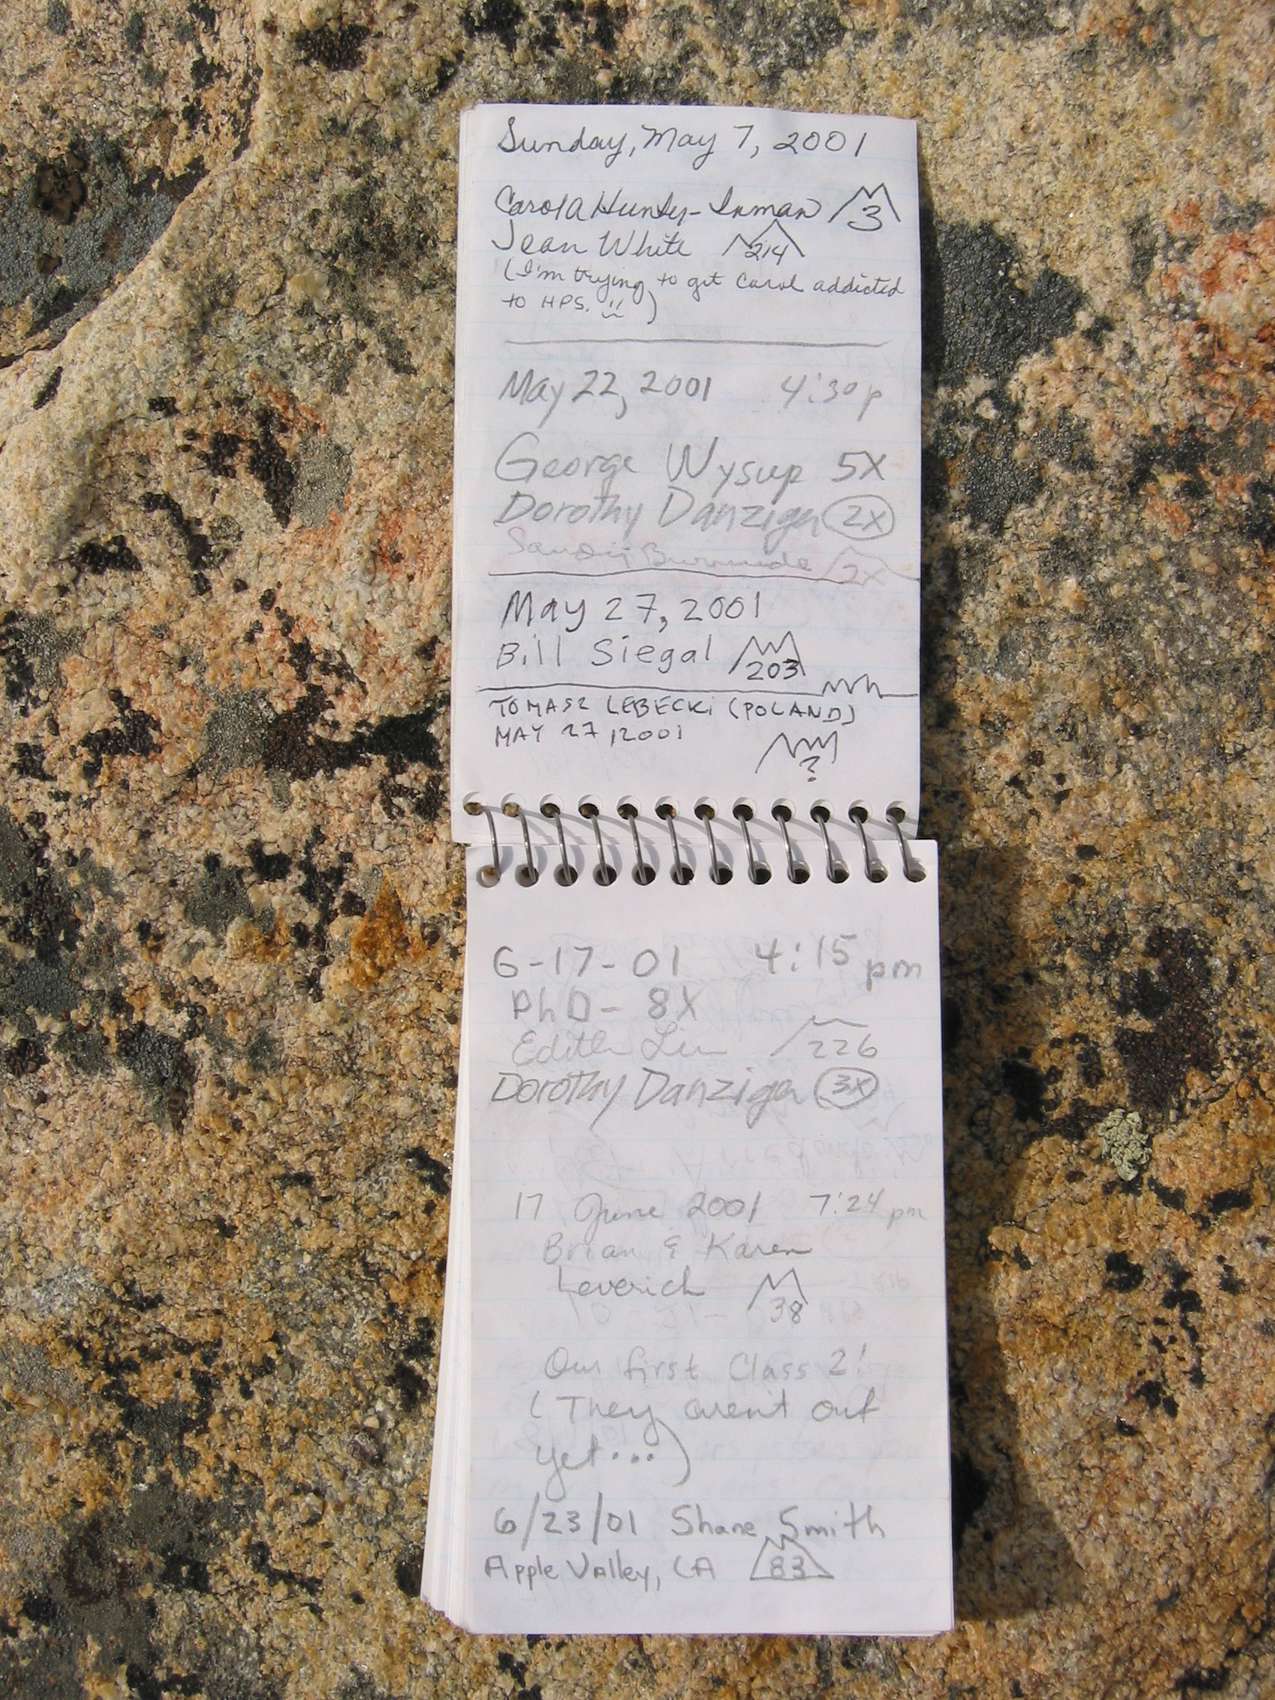 Sunday, May 7, 2001
Carol A Hunty-Inman 3
Jean White 214
(I'm trying to get Carol addicted
to HPS. )
May 22, 2001 4:30p
George Wysup 5X
Dorothy Danziger 2X
2X
May 27, 2001
Bill Siegal 203
TOMASZ LEBECKi (POLAND)
MAY 27, 2001
?
6-17-01 4:15 pm
PhD- 8X
Edith Liu 226
Dorothy Danziger 3X
17 June 2001 7:24 pm
Brian & Karen
Leverich 38
Our first Class 2!
(They aren't out
yet...)
6/23/01 Shane Smith
Apple Valley, CA 83